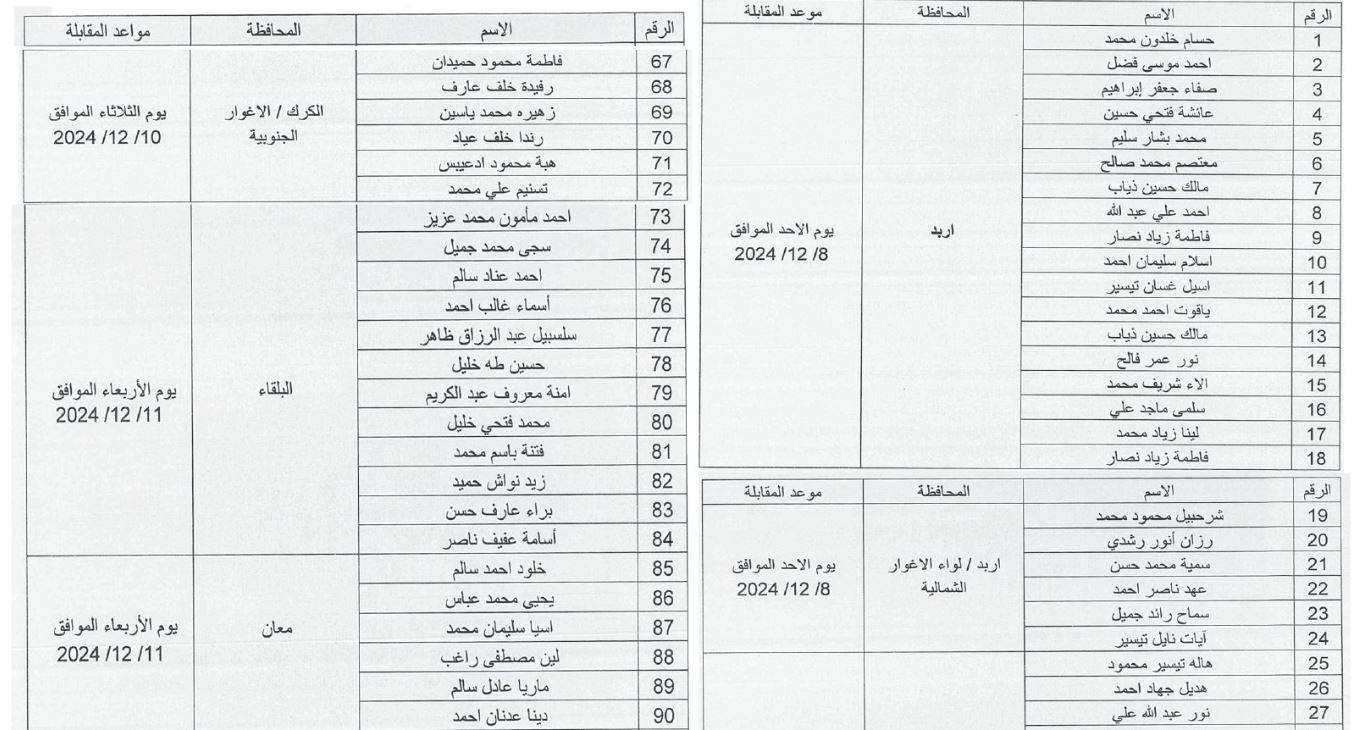 الرقم الاسم المحافظة موعد المقابلة
1 حسام خلدون محمد
2 احمد موسى فضل
3 صفاء جعفر إبراهيم
4 عائشة فتحي حسين
5 محمد بشار سليم
6 معتصم محمد صالح
7 مالك حسين ذياب
8 احمد علي عبد الله
اربد
يوم الاحد الموافق
2024 /12 /8
9 فاطمة زياد نصار
10 اسلام سليمان احمد
11 اسيل غسان تيسير
12 ياقوت احمد محمد
13 مالك حسين ذياب
14 نور عمر فالح
15 الاء شريف محمد
16 سلمى ماجد علي
17 لينا زياد محمد
18 فاطمة زياد نصار
الرقم الاسم المحافظة موعد المقابلة
19 شرحبيل محمود محمد
20 رزان أنور رشدي
21 سمية محمد حسن
اربد / لواء الاغوار
الشمالية
يوم الاحد الموافق
2024 /12 /8
22 عهد ناصر احمد
23 سماح رائد جميل
24 آيات نايل تيسير
25 هاله تيسير محمود
26 هديل جهاد احمد
27 نور عبد الله علي
الرقم الاسم المحافظة مواعد المقابلة
67 فاطمة محمود حميدان
68 رفيدة خلف عارف
69 زهيره محمد ياسين
الكرك / الاغوار
الجنوبية
يوم الثلاثاء الموافق
2024 /12 /10
70 رندا خلف عياد
71 هبة محمود ادعيبس
72 تسنيم علي محمد
73 احمد مأمون محمد عزيز
74 سجى محمد جميل
75 احمد عناد سالم
76 أسماء غالب احمد
77 سلسبيل عبد الرزاق ظاهر
78 حسين طه خليل
79 امنة معروف عبد الكريم
البلقاء
يوم الأربعاء الموافق
2024 /12 /11
80 محمد فتحي خليل
81 فتنة باسم محمد
82 زيد نواش حميد
83 براء عارف حسن
84 أسامة عفيف ناصر
85 خلود احمد سالم
86 يحيى محمد عباس
87 اسيا سليمان محمد
معان
يوم الأربعاء الموافق
2024 /12 /11
88 لين مصطفى راغب
89 ماريا عادل سالم
90 دينا عدنان احمد